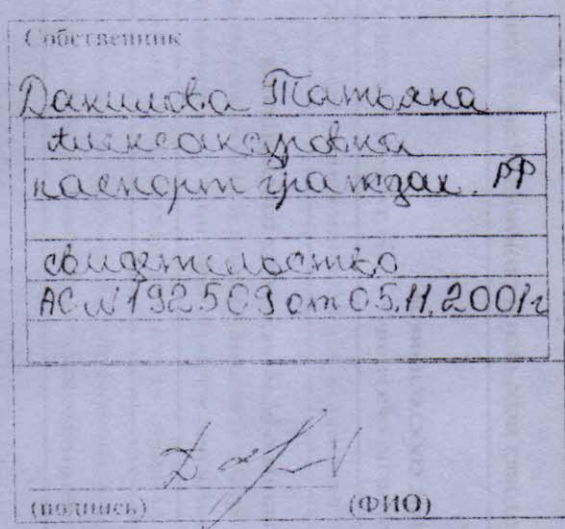 Собственник
Данилова Татьяна
Александровна
паспорт граждан. РФ
свидетельство
АС № 192509 от 05.11.2001г
(подпись) (ФИО)